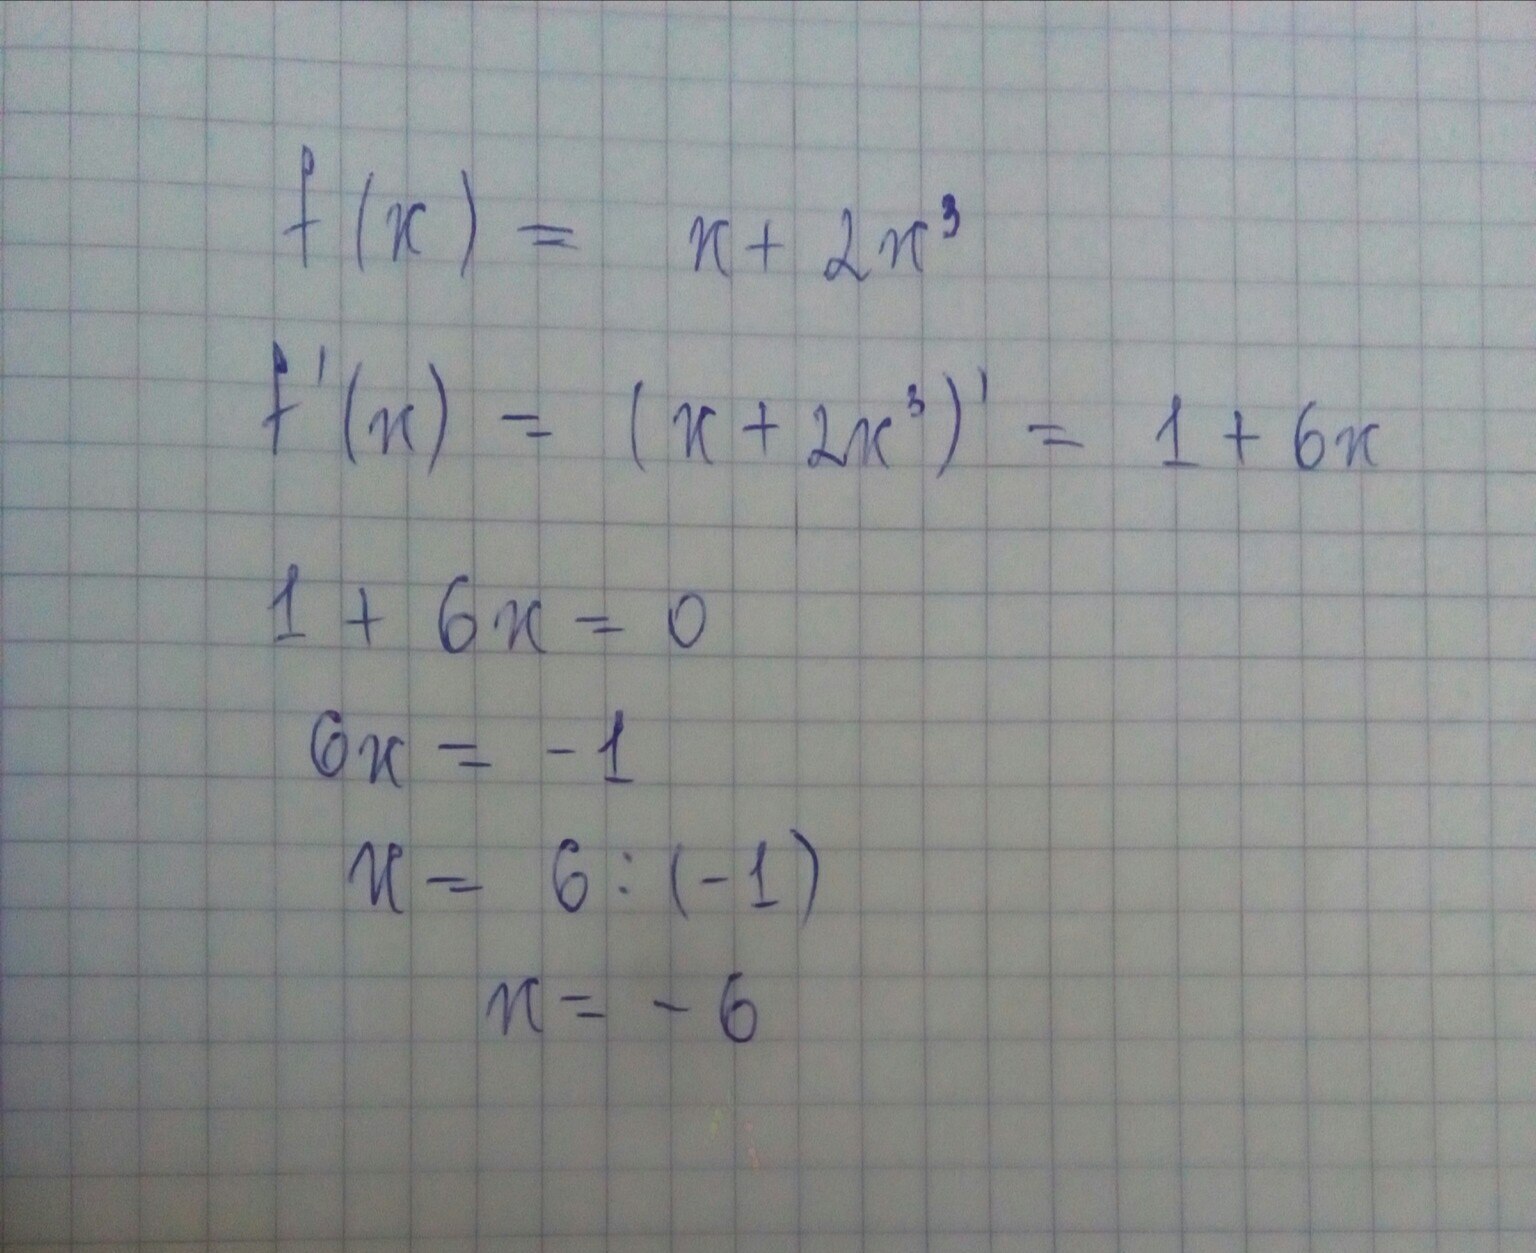 f(x) = x + 2x³
f'(x) = (x + 2x³)' = 1 + 6x
1 + 6x = 0
6x = -1
x = 6 : (-1)
x = - 6